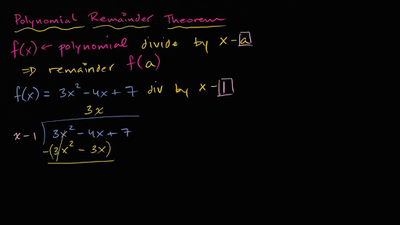 Polynomial Remainder Theorem
f(x) ← polynomial divide by x - a
⇒ remainder f(a)
f(x) = 3x² - 4x + 7 div by x - 1
3x
x - 1 3x² - 4x + 7
-(3x² - 3x)